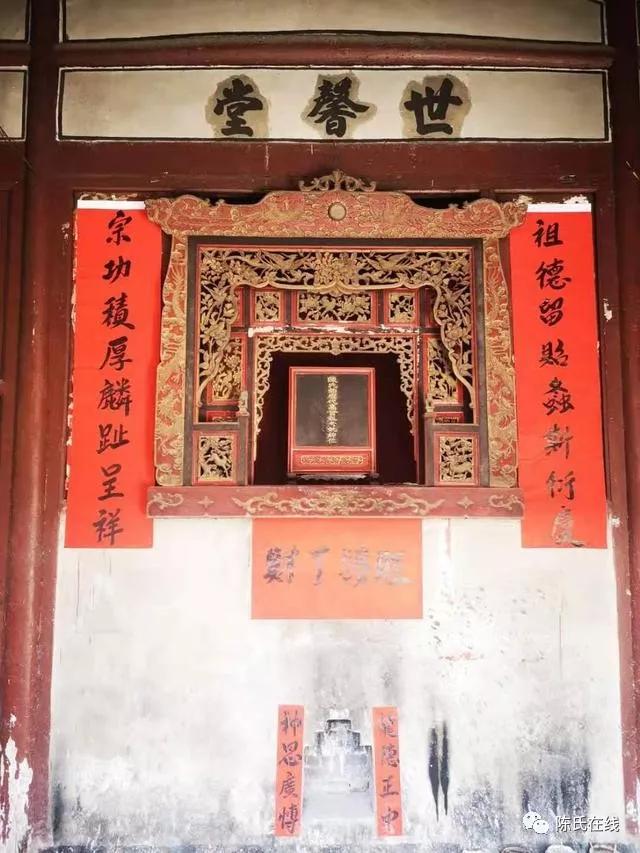 世馨堂
祖德留貽螽斯衍慶
宗功積厚麟趾呈祥
丁財
龍德正中
神恩廣博
陈氏在线